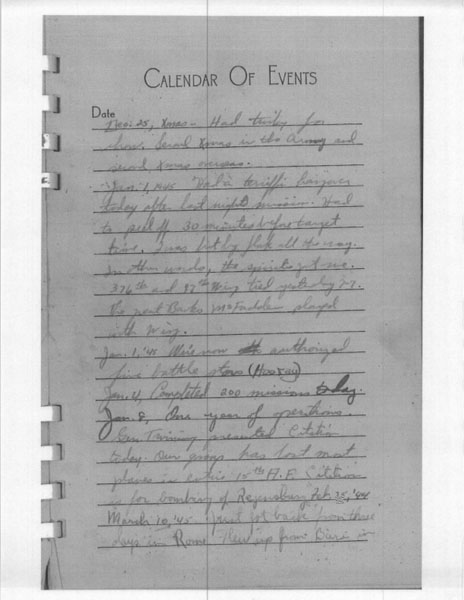 CALENDAR OF EVENTS
Date
Dec. 25, Xmas - Had turkey for
chow. Second Xmas in the Army and
second Xmas overseas.
Jan. 1, 1945 Had a terrific hangover
today after last night's mission. Had
to peel off 30 minutes before target
time. I was hit by flak all the way.
In other words, the spirits got me.
376th and 47th Wing tied yesterday 7-7.
The great Banks McFadden played
with Wing.
Jan. 1, '45 We're now authorized
five battle stars (Hooray)
Jan 4, Completed 200 missions today.
Jan. 8, One year of operations.
Gen. Twining presented Citation
today. Our group has lost most
planes in entire 15th A.F. Citation
is for bombing of Regensburg Feb 25, '44
March 10, '45 Just got back from three
days in Rome. Flew up from Bari in